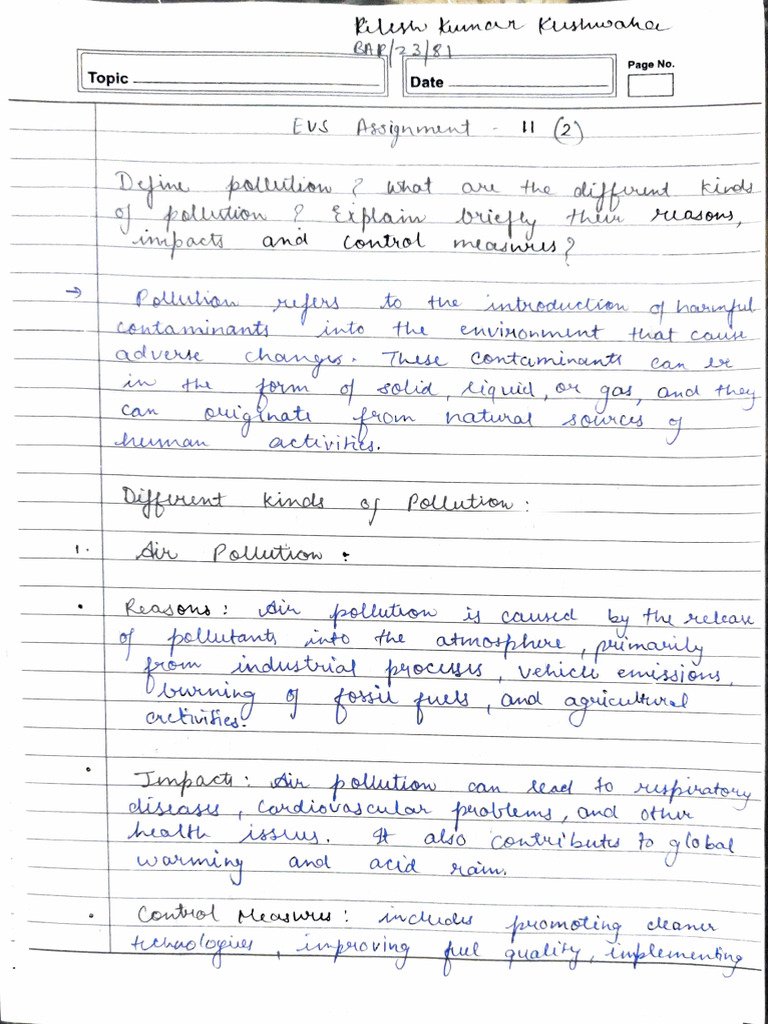 Ritesh Kumar Kushwaha
BAP/23/81
Topic
Date
Page No.
EVS Assignment - II (2)
Define pollution? What are the different kinds
of pollution? Explain briefly their reasons,
impacts and control measures?
→ Pollution refers to the introduction of harmful
contaminants into the environment that cause
adverse changes. These contaminants can be
in the form of solid, liquid, or gas, and they
can originate from natural sources of
human activities.
Different Kinds of Pollution:
1. Air Pollution:
• Reasons: Air pollution is caused by the release
of pollutants into the atmosphere, primarily
from industrial processes, vehicle emissions,
burning of fossil fuels, and agricultural
activities.
• Impacts: Air pollution can lead to respiratory
diseases, cardiovascular problems, and other
health issues. It also contributes to global
warming and acid rain.
• Control Measures: includes promoting cleaner
technologies, improving fuel quality, implementing